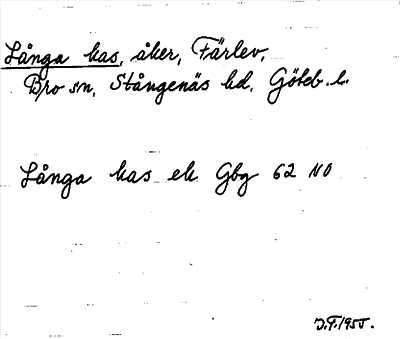 Långa kas, åker, Färlev,
Bro sn, Stångenäs hd, Göteb. l.
Långa kas ek Gbg 62 NO
J.F. 1955.